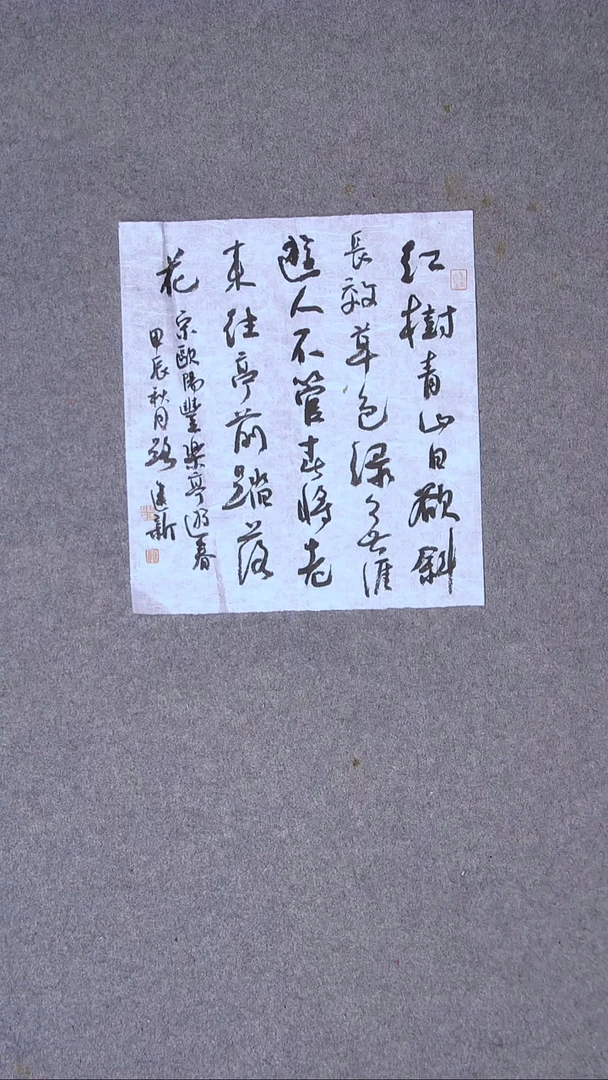 红樹青山日欲斜
長郊草色緑無涯
遊人不管春將老
来往亭前踏落
花 宋歐陽豐楽亭遊春
甲辰秋月路建新